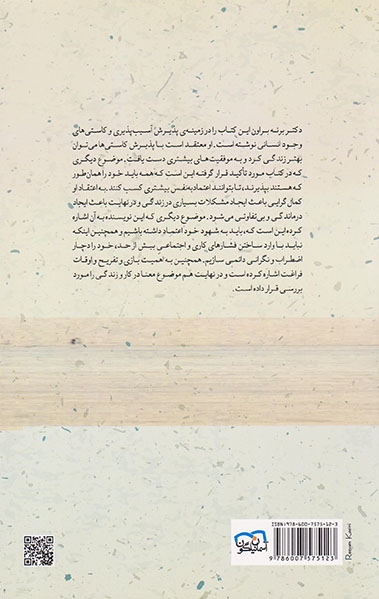 دکتر برنه براون این کتاب را در زمینه‌ی پذیرش آسیب‌پذیری و کاستی‌های
وجود انسانی نوشته است. او معتقد است با پذیرش کاستی‌ها می‌توان
بهتر زندگی کرد و به موفقیت‌های بیشتری دست یافت. موضوع دیگری
که در کتاب مورد تأکید قرار گرفته این است که همه باید خود را همان‌طور
که هستند بپذیرند، تا بتوانند اعتماد به‌نفس بیشتری کسب کنند. به اعتقاد او
کمال‌گرایی باعث ایجاد مشکلات بسیاری در زندگی و در نهایت باعث ایجاد
درماندگی و بی‌تفاوتی می‌شود. موضوع دیگری که این نویسنده به آن اشاره
کرده این است که، باید به شهود خود اعتماد داشته باشیم و همچنین اینکه
نباید با وارد ساختن فشارهای کاری و اجتماعی بیش از حد، خود را دچار
اضطراب و نگرانی دائمی سازیم. همچنین به اهمیت بازی و تفریح و اوقات
فراغت اشاره کرده است و در نهایت هم موضوع معنا در کار و زندگی را مورد
بررسی قرار داده است.
ISBN: 978-600-7575-12-3
9 786007 575123
آسمان نیلگون
Rayan Kami